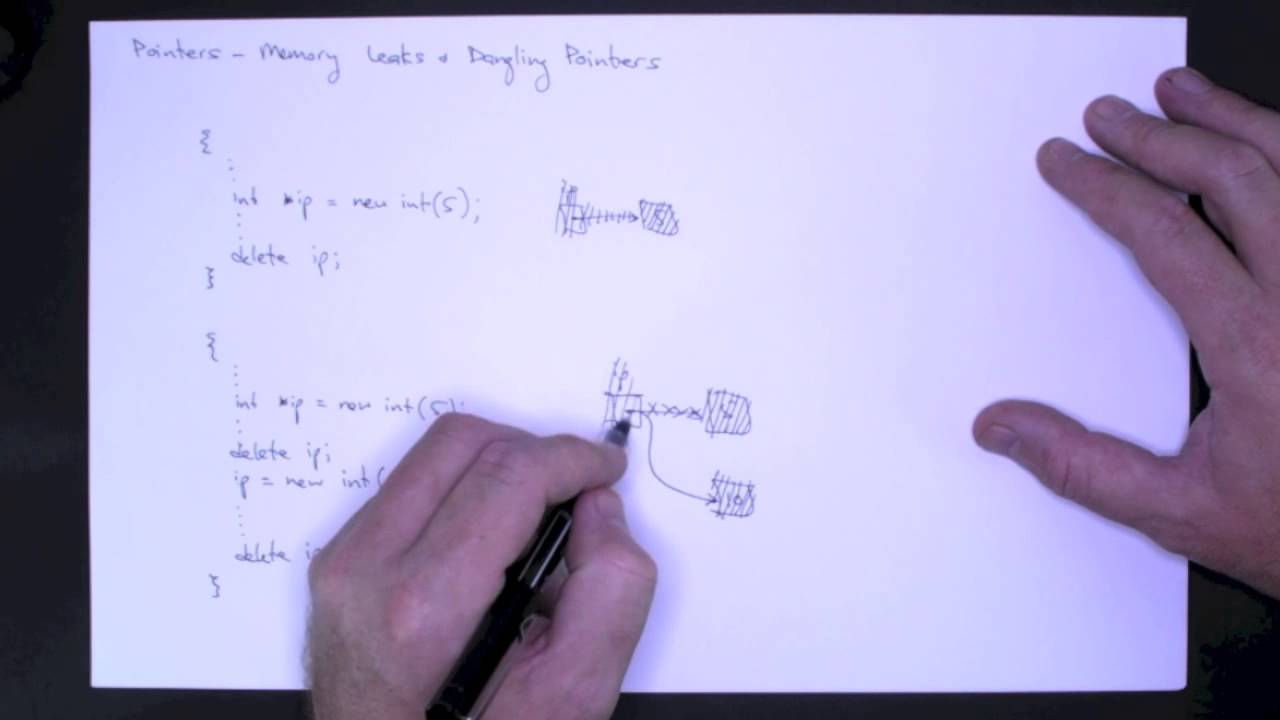 Pointers - Memory Leaks & Dangling Pointers
{
⋮
int *ip = new int(5);
⋮
delete ip;
}
{
⋮
int *ip = new int(5);
⋮
delete ip;
ip = new int(
⋮
delete ip
}
ip